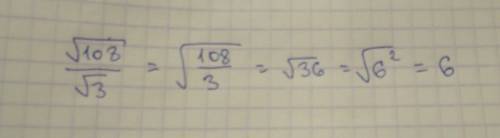 √108/√3 = √(108/3) = √36 = √6² = 6